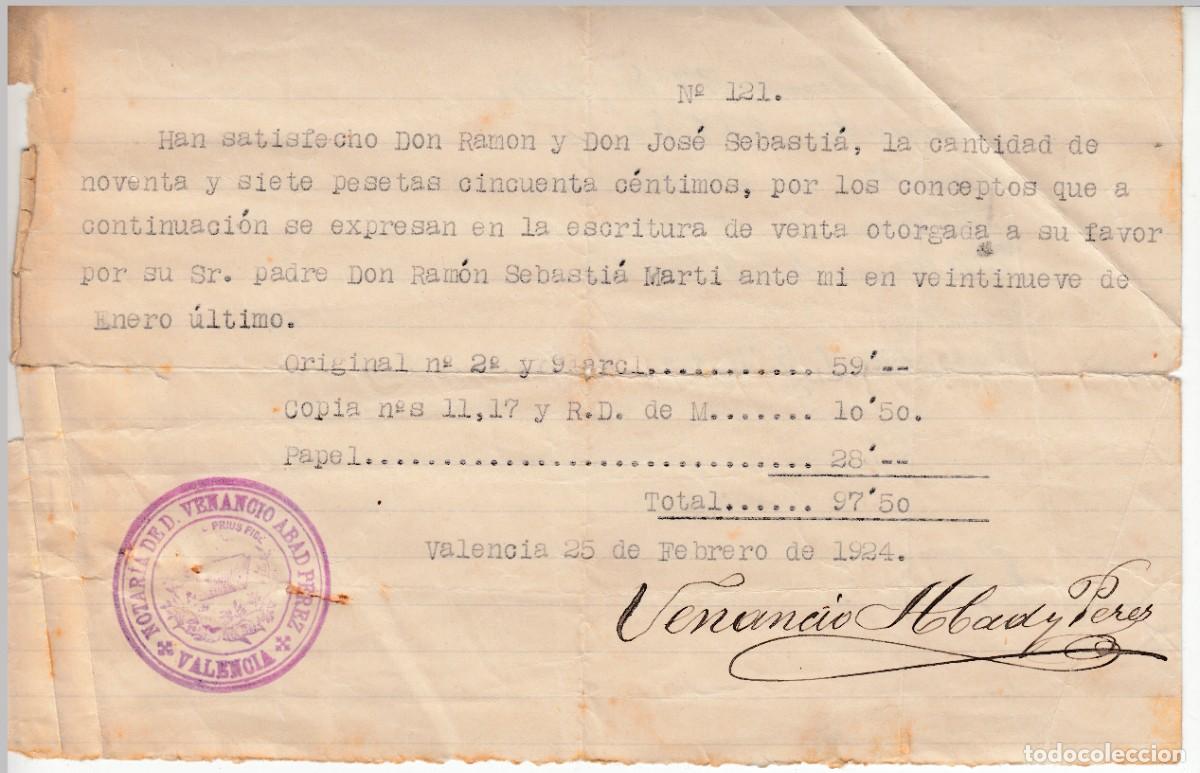 Nº 121.
Han satisfecho Don Ramon y Don José Sebastiá, la cantidad de
noventa y siete pesetas cincuenta céntimos, por los conceptos que a
continuación se expresan en la escritura de venta otorgada a su favor
por su Sr. padre Don Ramón Sebastiá Marti ante mi en veintinueve de
Enero último.
Original nº 2º y 9 arcl............ 59´--
Copia nºs 11,17 y R.D. de M....... 10´50.
Papel............................. 28´--
Total...... 97´50
Valencia 25 de Febrero de 1924.
Venancio Abad y Perez
NOTARÍA DE D. VENANCIO ABAD PEREZ
PRIUS FIDE
VALENCIA
todocoleccion